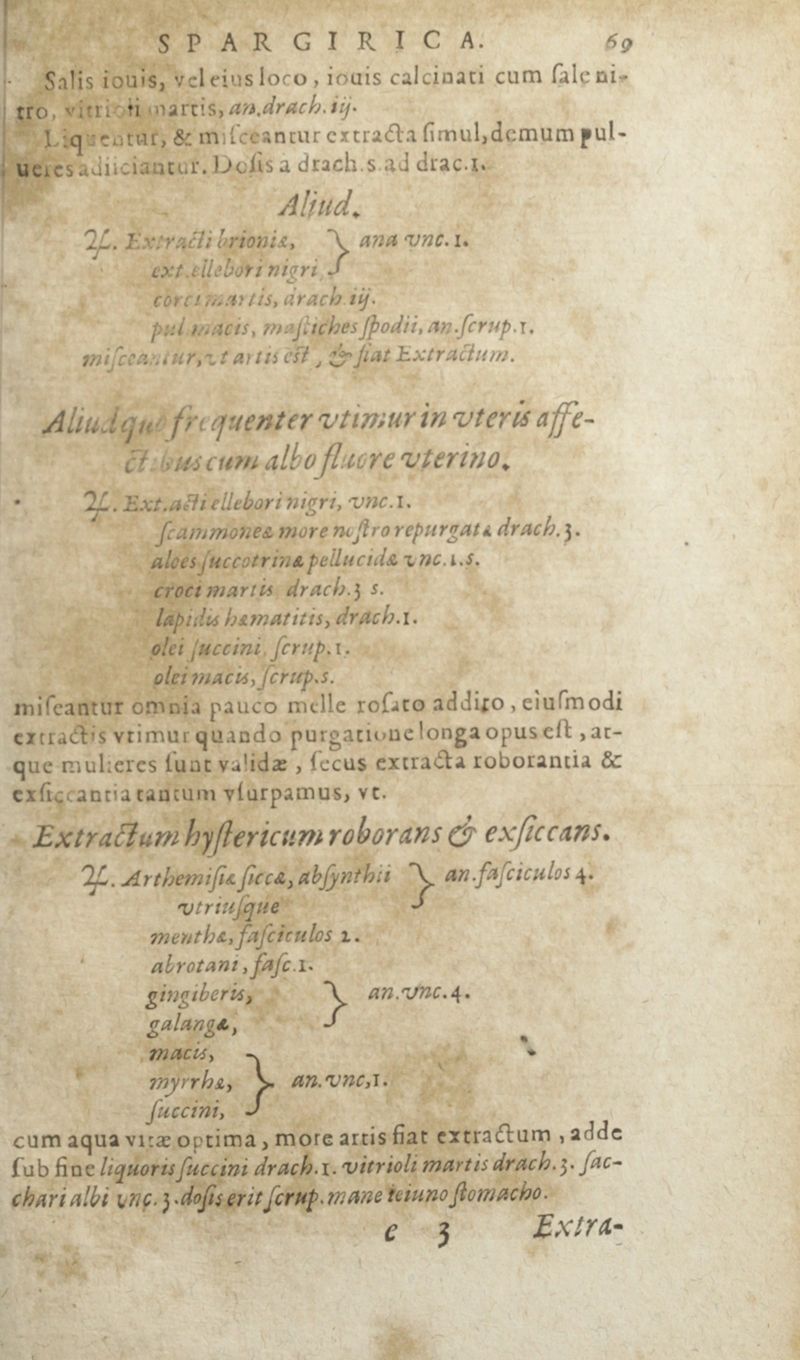 SPARGIRICA. 69
Salis iouis, vel eius loco, iouis calcinati cum sale ni-
tro, vitrioli martis, an.drach.iij.
Liquentur, & misceantur extracta simul, demum pul-
ueres adiiciantur. Dosis a drach.s.ad drac.1.
Aliud.
℞. Extracti brioniæ, } ana vnc.1.
ext.ellebori nigri
croci martis, drach.iij.
pul macis, mastiches spodii, an.scrup.1.
misceantur, vt artis est, & fiat Extractum.
Aliud quo frequenter vtimur in vteris affe-
ctibus cum albo fluore vterino.
℞. Ext.acti ellebori nigri, vnc.1.
scammoneæ more nostro repurgatæ drach.3.
aloes succotrinæ pellucidæ vnc.1.s.
croci martis drach.3 s.
lapidis hæmatitis, drach.1.
olei succini, scrup.1.
olei macis, scrup.s.
miseantur omnia pauco melle rosato addito, eiusmodi
extractis vtimur quando purgatione longa opus est, at-
que mulieres sunt validæ, secus extracta roborantia &
exsiccantia tantum vsurpamus, vt.
Extractum hystericum roborans & exsiccans.
℞. Arthemisiæ siccæ, absynthii } an.fasciculos 4.
vtriusque
menthæ, fasciculos 2.
abrotani, fasc.1.
gingiberis, } an.vnc.4.
galangæ,
macis,
myrrhæ, } an.vnc,1.
succini,
cum aqua vitæ optima, more artis fiat extractum, adde
sub fine liquoris succini drach.1. vitrioli martis drach.3. sac-
chari albi vnc.3.dosis erit scrup.mane ieiuno stomacho.
e 3 Extra-